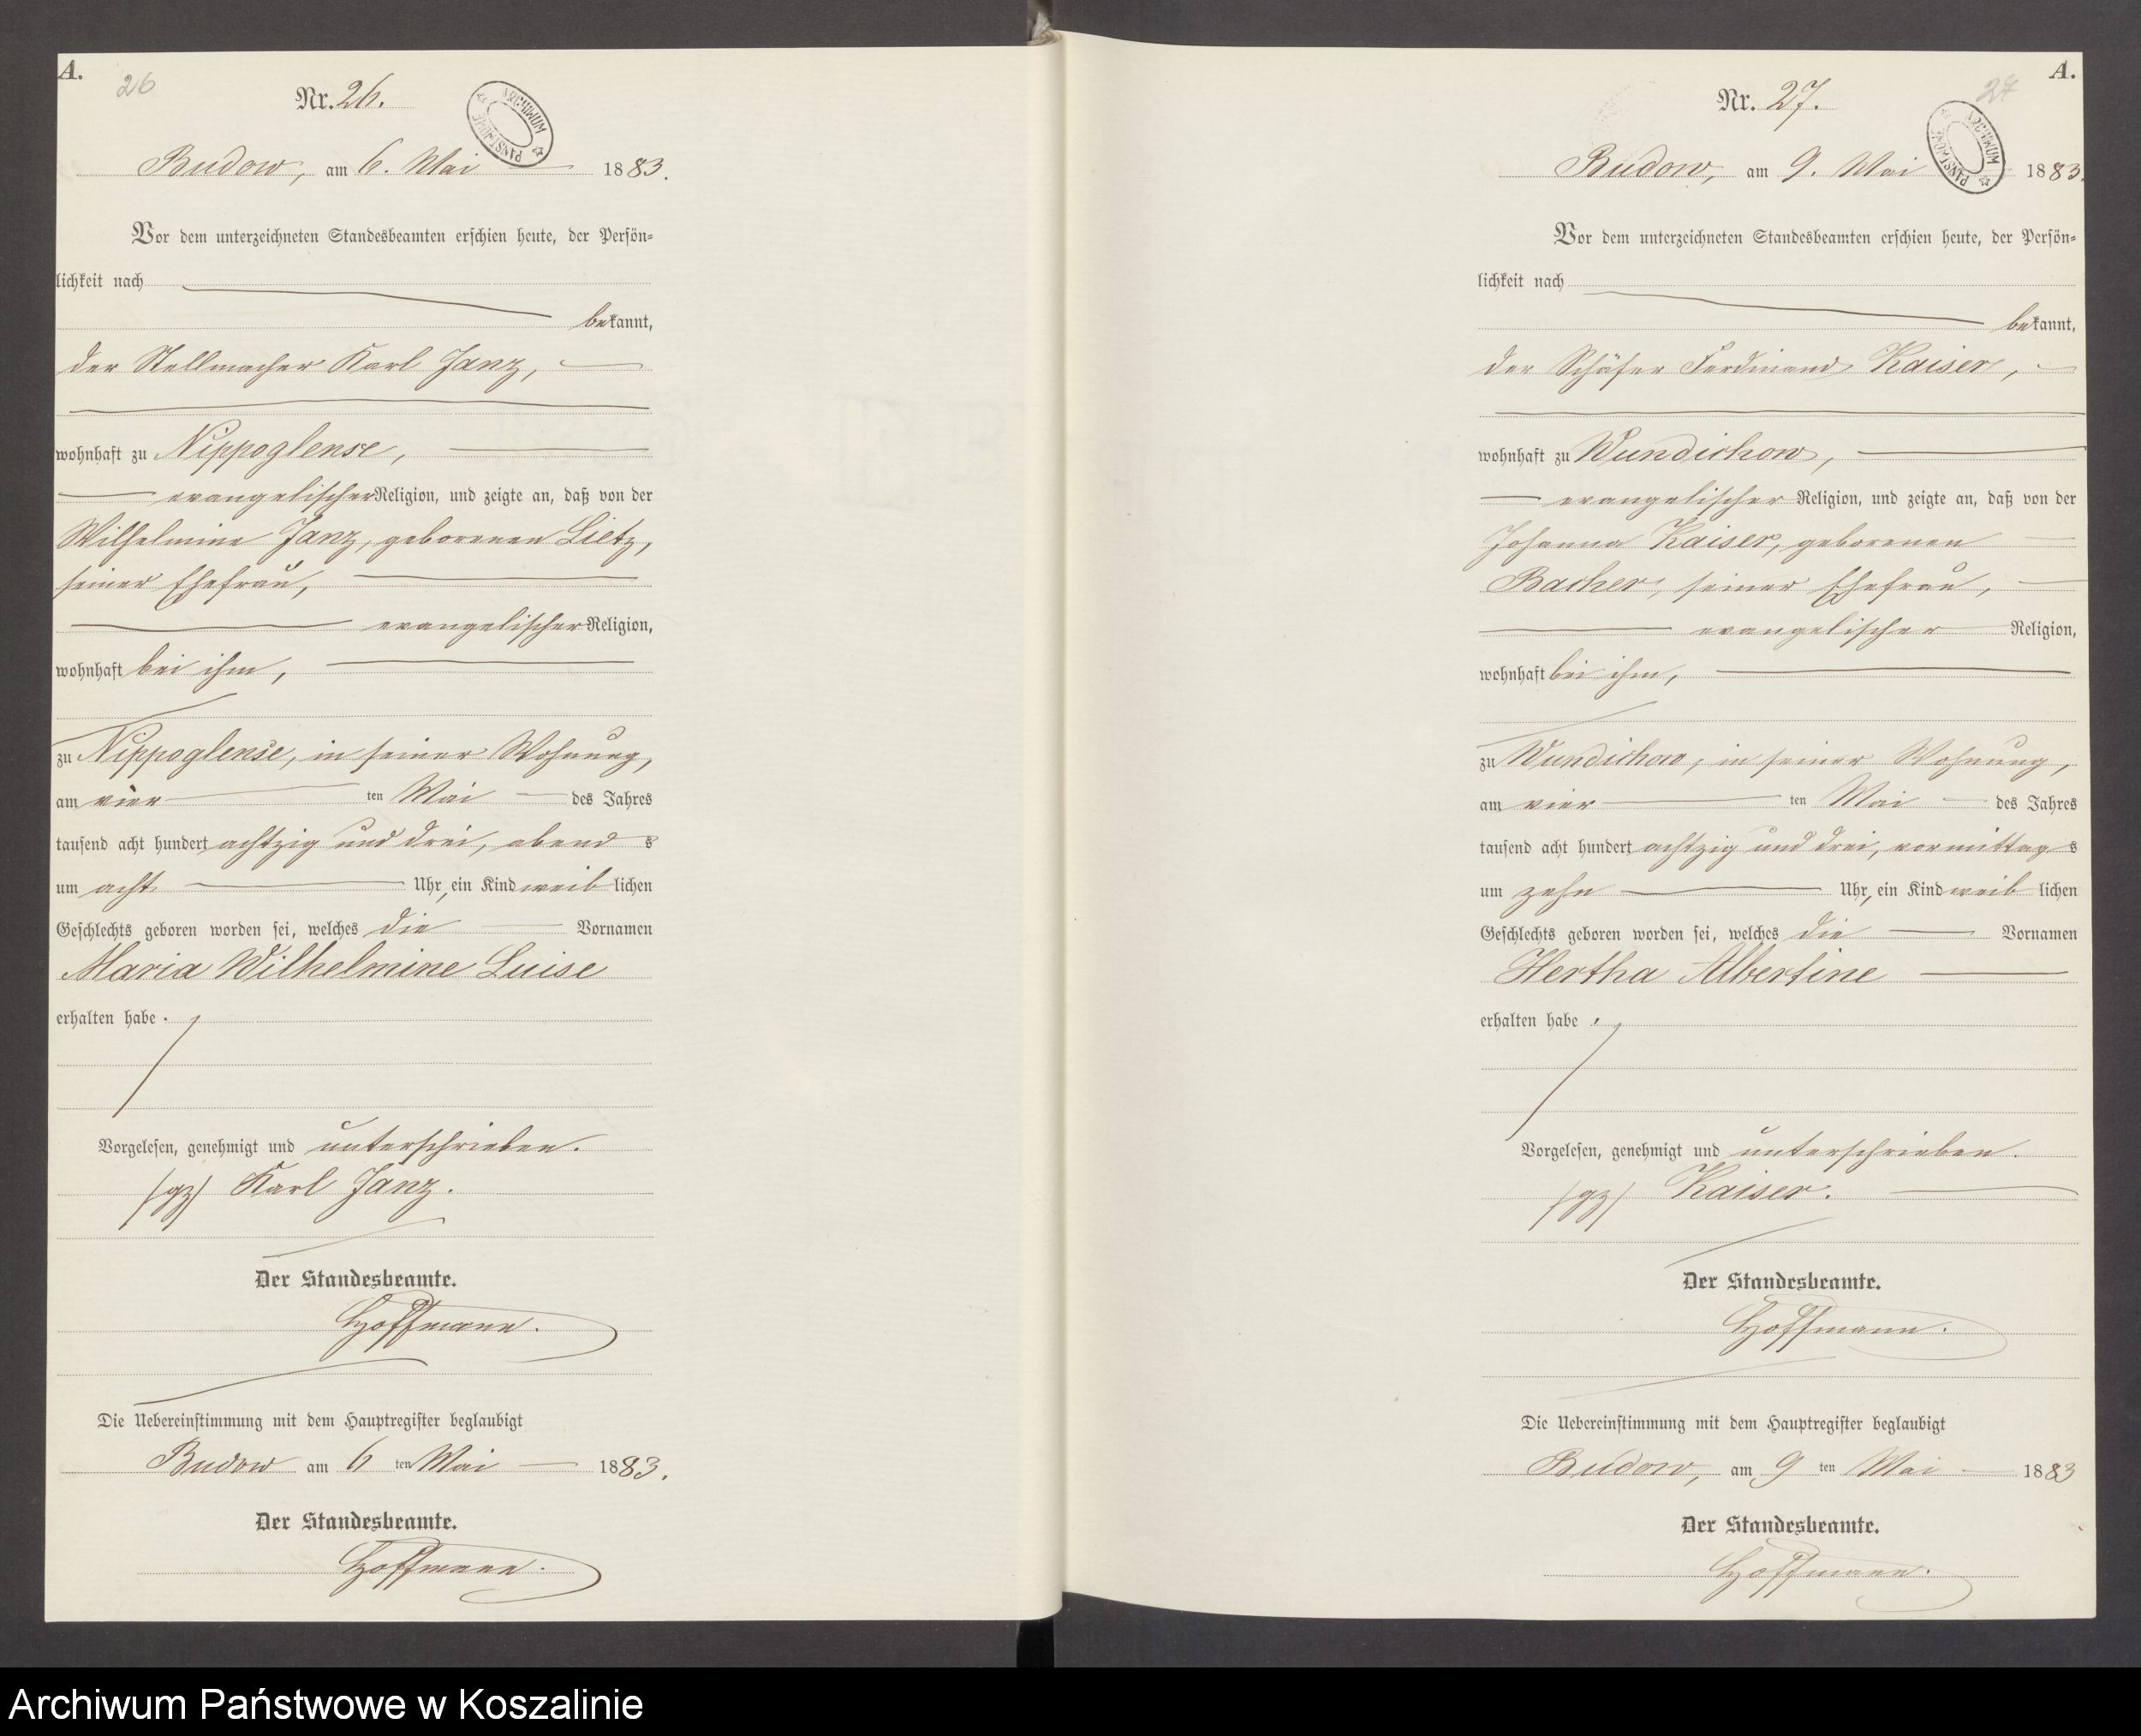 A.
26
Nr. 26.
ARCHIWUM PAŃSTWOWE
Budow, am 6. Mai 1883.
Vor dem unterzeichneten Standesbeamten erschien heute, der Persön-
lichkeit nach
bekannt,
der Stellmacher Karl Janz,
wohnhaft zu Nippoglense,
evangelischer Religion, und zeigte an, daß von der
Wilhelmine Janz, geborenen Lietz,
seiner Ehefrau,
evangelischer Religion,
wohnhaft bei ihm,
zu Nippoglense, in seiner Wohnung,
am vier ten Mai des Jahres
tausend acht hundert achtzig und drei, abends
um acht Uhr, ein Kind weiblichen
Geschlechts geboren worden sei, welches die Vornamen
Maria Wilhelmine Luise
erhalten habe.
Vorgelesen, genehmigt und unterschrieben.
(gz) Karl Janz.
Der Standesbeamte.
Hoffmann.
Die Uebereinstimmung mit dem Hauptregister beglaubigt
Budow am 6 ten Mai 1883.
Der Standesbeamte.
Hoffmann.
A.
27
Nr. 27.
ARCHIWUM PAŃSTWOWE
Budow, am 9. Mai 1883.
Vor dem unterzeichneten Standesbeamten erschien heute, der Persön-
lichkeit nach
bekannt,
der Schäfer Ferdinand Kaiser,
wohnhaft zu Wundichow,
evangelischer Religion, und zeigte an, daß von der
Johanna Kaiser, geborenen
Bacher, seiner Ehefrau,
evangelischer Religion,
wohnhaft bei ihm,
zu Wundichow, in seiner Wohnung,
am vier ten Mai des Jahres
tausend acht hundert achtzig und drei, vormittags
um zehn Uhr, ein Kind weiblichen
Geschlechts geboren worden sei, welches die Vornamen
Hertha Albertine
erhalten habe.
Vorgelesen, genehmigt und unterschrieben.
(gz) Kaiser.
Der Standesbeamte.
Hoffmann.
Die Uebereinstimmung mit dem Hauptregister beglaubigt
Budow, am 9 ten Mai 1883
Der Standesbeamte.
Hoffmann.
Archiwum Państwowe w Koszalinie